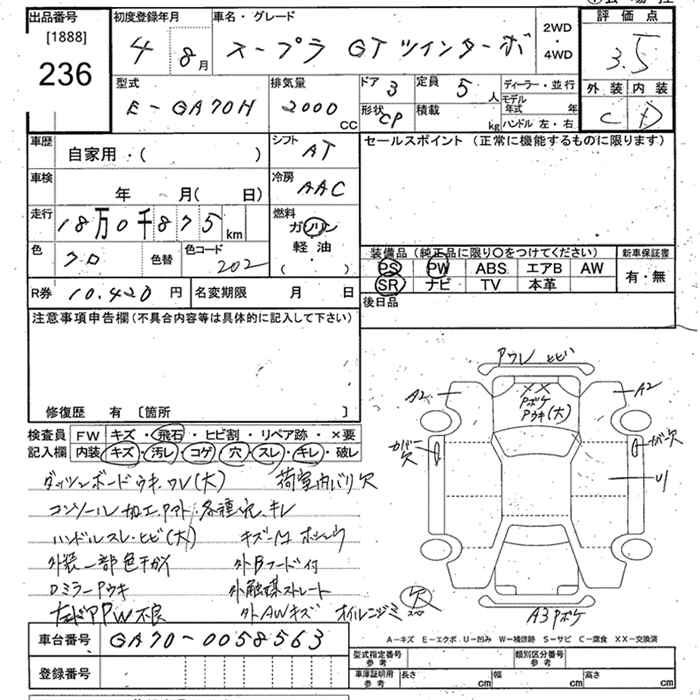 出品番号
[1888]
236
初度登録年月
4 8月
車名・グレード
スープラ GTツインターボ
2WD
・
4WD
評価点
3.5
外装 内装
C D
型式
E-GA70H
排気量
2000
CC
ドア 3
定員 5人
形状 CP
積載 kg
ディーラー・並行
モデル年式 年
ハンドル 左・右
車歴
自家用・( )
シフト
AT
車検
年 月( 日)
冷房
AAC
走行
18万0千875km
燃料
ガソリン
軽油
( )
色
クロ
色替
色コード
202
R券 10.420円
名変期限 月 日
セールスポイント(正常に機能するものに限ります)
装備品(純正品に限り〇をつけてください)
新車保証書
PS PW ABS エアB AW
SR ナビ TV 本革
有・無
後日品
注意事項申告欄(不具合内容等は具体的に記入して下さい)
修復歴 有 [箇所 ]
検査員
記入欄
FW キズ・飛石・ヒビ割・リペア跡・×要
内装 キズ・汚レ・コゲ・穴・スレ・キレ・破レ
ダッシュボードウキ、ワレ(大) 荷室内バリ欠
コンソール加工アト・各種穴、キレ
ハンドルスレ・ヒビ(大)
外装一部色チガイ 外Bフード付
Dミラー Pウキ 外触媒ストレート
左ドアPW不良 外AWキズ オイルニジミ
Pワレ ヒビ
A2
A2
XX
Pボケ
Pウキ(大)
カバー欠
カバー欠
U1
欠
A3Pボケ
A-キズ E-エクボ U-凹み W-補修跡 S-サビ C-腐食 XX-交換済
車台番号
GA70-0058563
登録番号
型式指定番号
参考
類別区分番号
参考
車庫証明用
参考
長さ cm
幅 cm
高さ cm